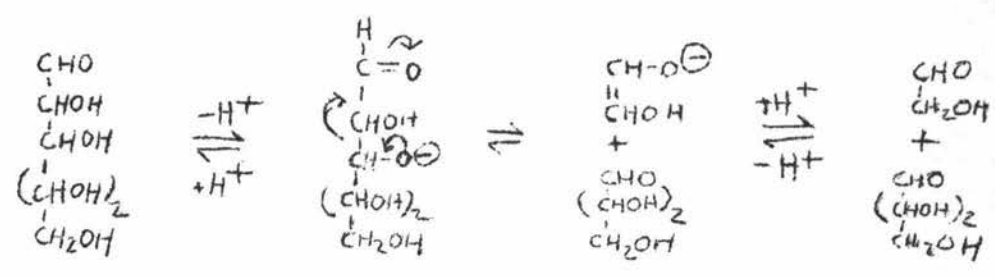 CHO
CHOH
CHOH
(CHOH)2
CH2OH
-H+
+H+
H
C=O
CHOH
CH-O⊖
(CHOH)2
CH2OH
CH-O⊖
CHOH
+
CHO
(CHOH)2
CH2OH
+H+
-H+
CHO
CH2OH
+
CHO
(CHOH)2
CH2OH